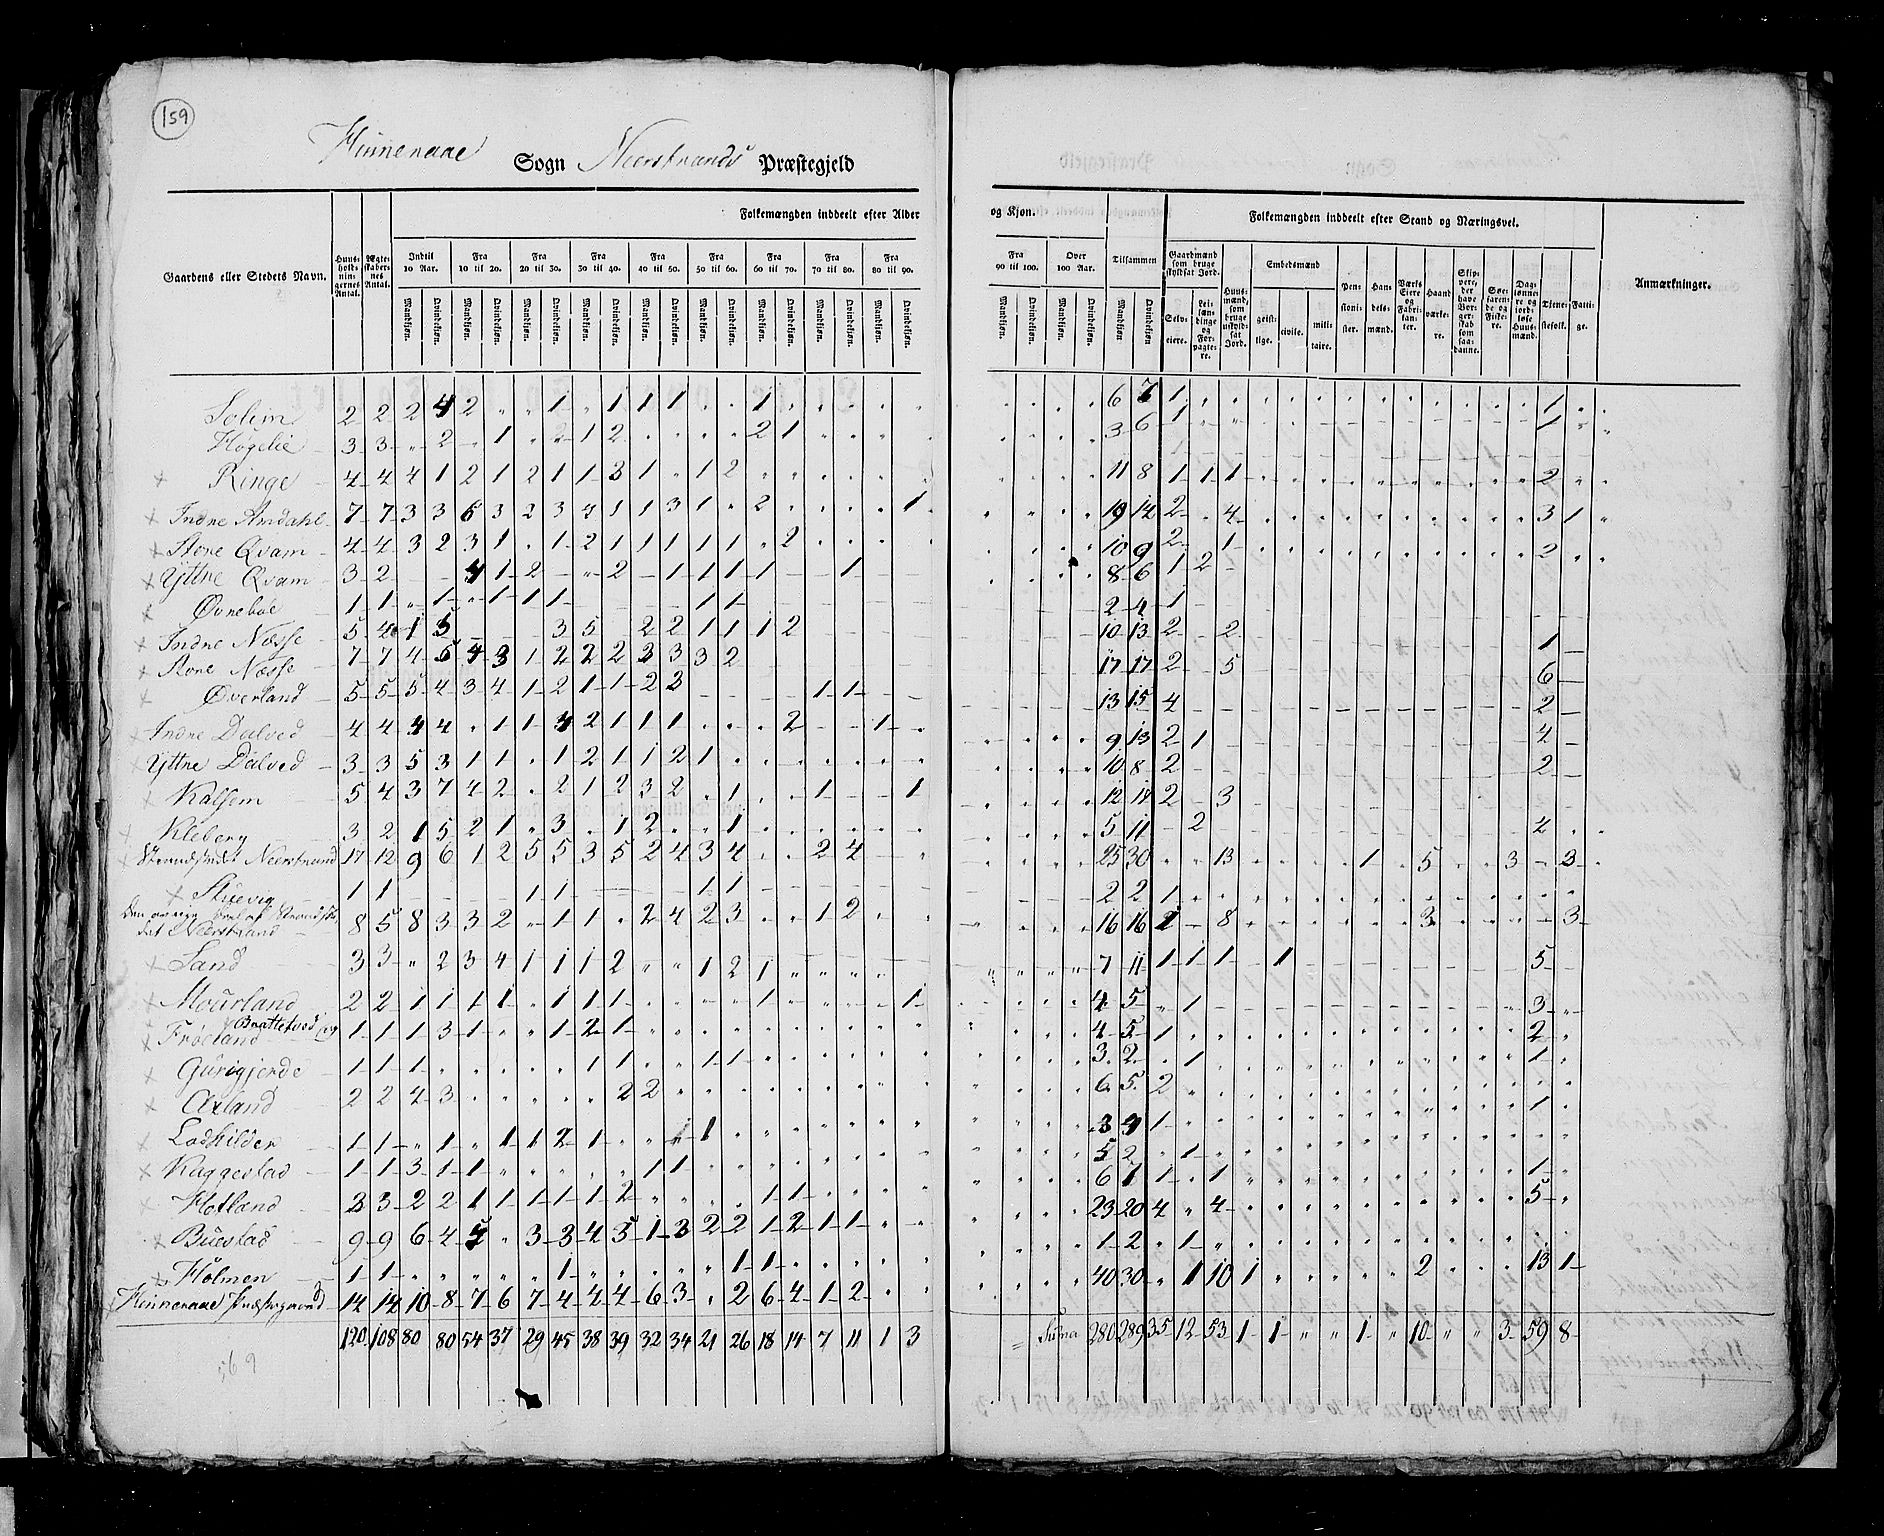 159
Hinneraae Sogn Neerstrands Præstegjeld
Folkemængden inddeelt efter Alder og Kjøn. Folkemængden inddeelt efter Stand og Næringsvei.
Gaardens eller Stedets Navn. Huus-hold-nin-gernes Antal. Ægte-skaber-nes Antal. Indtil 10 Aar. Fra 10 til 20. Fra 20 til 30. Fra 30 til 40. Fra 40 til 50. Fra 50 til 60. Fra 60 til 70. Fra 70 til 80. Fra 80 til 90. Fra 90 til 100. Over 100 Aar. Tilsammen Gaardmænd som bruge skyldsat Jord. Huus-mænd, som bruge uskyld-sat Jord. Embedsmænd Pen-sioni-ster. Han-dels-mænd. Værks Eiere og Fabri-kan-ter. Haand-værke-re. Skip-pere, der have Bor-ger-skab som saa-danne. Søe-faren-de og Fiske-re. Dag-lønne-re og jord-løse Huus-mænd. Tjene-stefolk. Fatti-ge. Anmærkninger.
Mandkjøn. Qvindekjøn. Mandkjøn. Qvindekjøn. Mandkjøn. Qvindekjøn. Mandkjøn. Qvindekjøn. Mandkjøn. Qvindekjøn. Mandkjøn. Qvindekjøn. Mandkjøn. Qvindekjøn. Mandkjøn. Qvindekjøn. Mandkjøn. Qvindekjøn. Mandkjøn. Qvindekjøn. Mandkjøn. Qvindekjøn. Mandkjøn Qvindekjøn Selv-eiere. Lei-læn-dinge og For-pagte-re. geist-lige. civile. mili-taire.
Solem 2 2 2 4 2 1 1 1 1 1 6 7 1 1
Høgelie 3 3 2 1 2 1 2 2 1 3 6 1 1
Ringe 4 4 4 1 2 1 2 1 1 3 1 1 2 11 8 1 1 1 2
Indre Amdahl 7 7 3 3 6 3 2 3 4 1 1 3 1 2 1 19 14 2 4 3 1
Aore Qvam 4 4 3 2 3 1 1 2 1 1 1 1 1 2 10 9 2 1 2
Yttre Qvam 3 2 4 1 2 2 1 1 1 1 1 8 6 1 2
Øvrebøe 1 1 1 1 1 1 1 1 2 4 1
Indre Næsse 5 4 1 5 3 5 2 2 1 1 1 2 10 13 2 2 1
Aore Næsse 7 7 4 6 4 3 1 2 2 2 3 3 3 2 17 17 2 5 6
Øverland 5 5 5 4 3 4 1 2 1 1 2 3 1 1 13 15 4 2
Indre Dalved 4 4 4 4 1 1 4 2 1 1 1 2 1 9 13 2 1 4
Yttre Dalved 3 3 5 3 1 1 1 2 1 1 2 1 10 8 2 2
Kalsem 5 4 3 7 4 2 2 1 2 3 2 1 1 1 12 17 2 3
Kleberg 3 2 1 5 2 1 3 1 2 1 5 11 2 4
Strandsædet Neerstrand 17 12 9 6 1 2 5 5 3 5 2 4 3 4 2 4 25 30 13 1 5 3 3
Stuevig 1 1 1 1 1 1 2 2 1
Den øvrige Deel af Strandsædet Neerstrand 8 5 8 3 3 2 1 1 2 4 2 3 1 2 16 16 1 8 3 3
Sand 3 3 2 3 4 1 1 1 2 1 2 1 7 11 1 1 1 1 5
Mourland 2 2 1 1 1 1 1 1 1 1 1 4 5 1 3
Frøeland Brattetved og 1 1 1 3 1 1 2 1 4 5 1 2
Gurigjerde 1 1 1 1 1 1 1 3 2 1 1
Axland 2 2 4 3 2 2 6 5 2
Ladhilder 1 1 1 1 1 2 1 1 3 4 1 1
Kaggestad 1 1 3 1 1 1 1 5 2 1
Hotland 3 3 2 2 1 1 1 1 1 2 1 1 6 7 1 1 1
Buestad 9 9 6 4 5 3 3 4 5 1 3 2 2 1 2 1 1 23 20 4 4 5
Holmen 1 1 1 1 1 1 2 1
Hinneraae Præstegaard 14 14 10 8 7 6 7 4 4 4 6 3 2 6 4 1 2 40 30 1 10 1 2 13 1
120 108 80 80 54 37 29 45 38 39 32 34 21 26 18 14 7 11 1 3 Suma 280 289 35 12 53 1 1 1 10 3 59 8
569